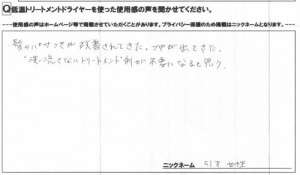 Q低温トリートメントドライヤーを使った使用感の声を聞かせてください。
---使用感の声はホームページ等で掲載させていただくことがあります。プライバシー保護のため掲載はニックネームとなります。---
髪のパサつきが改善されてきた。ツヤが出てきた。
"洗い流さないトリートメント"剤が不要になると思う。
ニックネーム 51才 女性